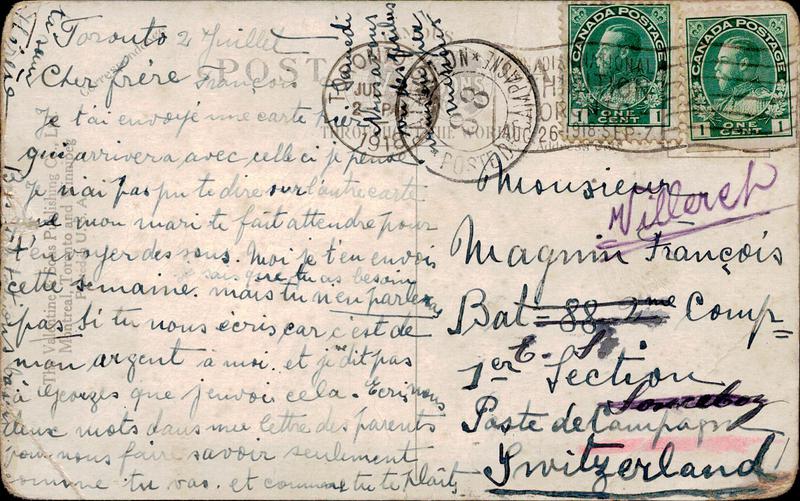 Toronto 2 Juillet
Cher frère François
Je t'ai envoyé une carte hier
qui arrivera avec celle ci je pense
je n'ai pas pu te dire sur l'autre carte
que mon mari te fait attendre pour
t'envoyer des sous. Moi je t'en envois
je sais que tu as besoin
cette semaine. mais tu n'en parleras
pas si tu nous écris car c'est de
mon argent à moi. et je dit pas
à Georges que j'envoi cela. Ecris nous
deux mots dans une lettre des parents
pour nous faire savoir seulement
comme tu vas. et comment tu te plaîts
Samedi
nous
POST
Correspondence
The Valentine & Sons Publishing Co., Ltd.
Montreal, Toronto and Winnipeg
Printed in
TORONTO
1918
POSTE DE CAMPAGNE
88
AUG. 26-1918-SEP. 7
CANADA POSTAGE
1 ONE CENT 1
CANADA POSTAGE
1 ONE CENT 1
Monsieur
Villeret
Magnin François
Bat 88 2me Comp
1er Section
Sonceboz
Poste de Campagne
Switzerland